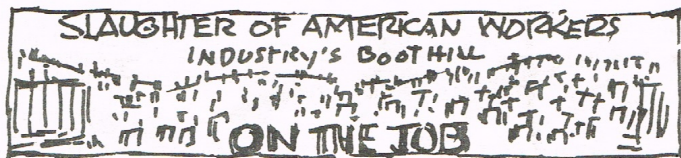 SLAUGHTER OF AMERICAN WORKERS
INDUSTRY'S BOOT HILL
ON THE JOB